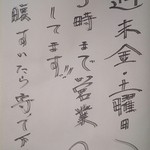 週末金・土曜日
時まで営業
してます!!
腹すいたら寄って